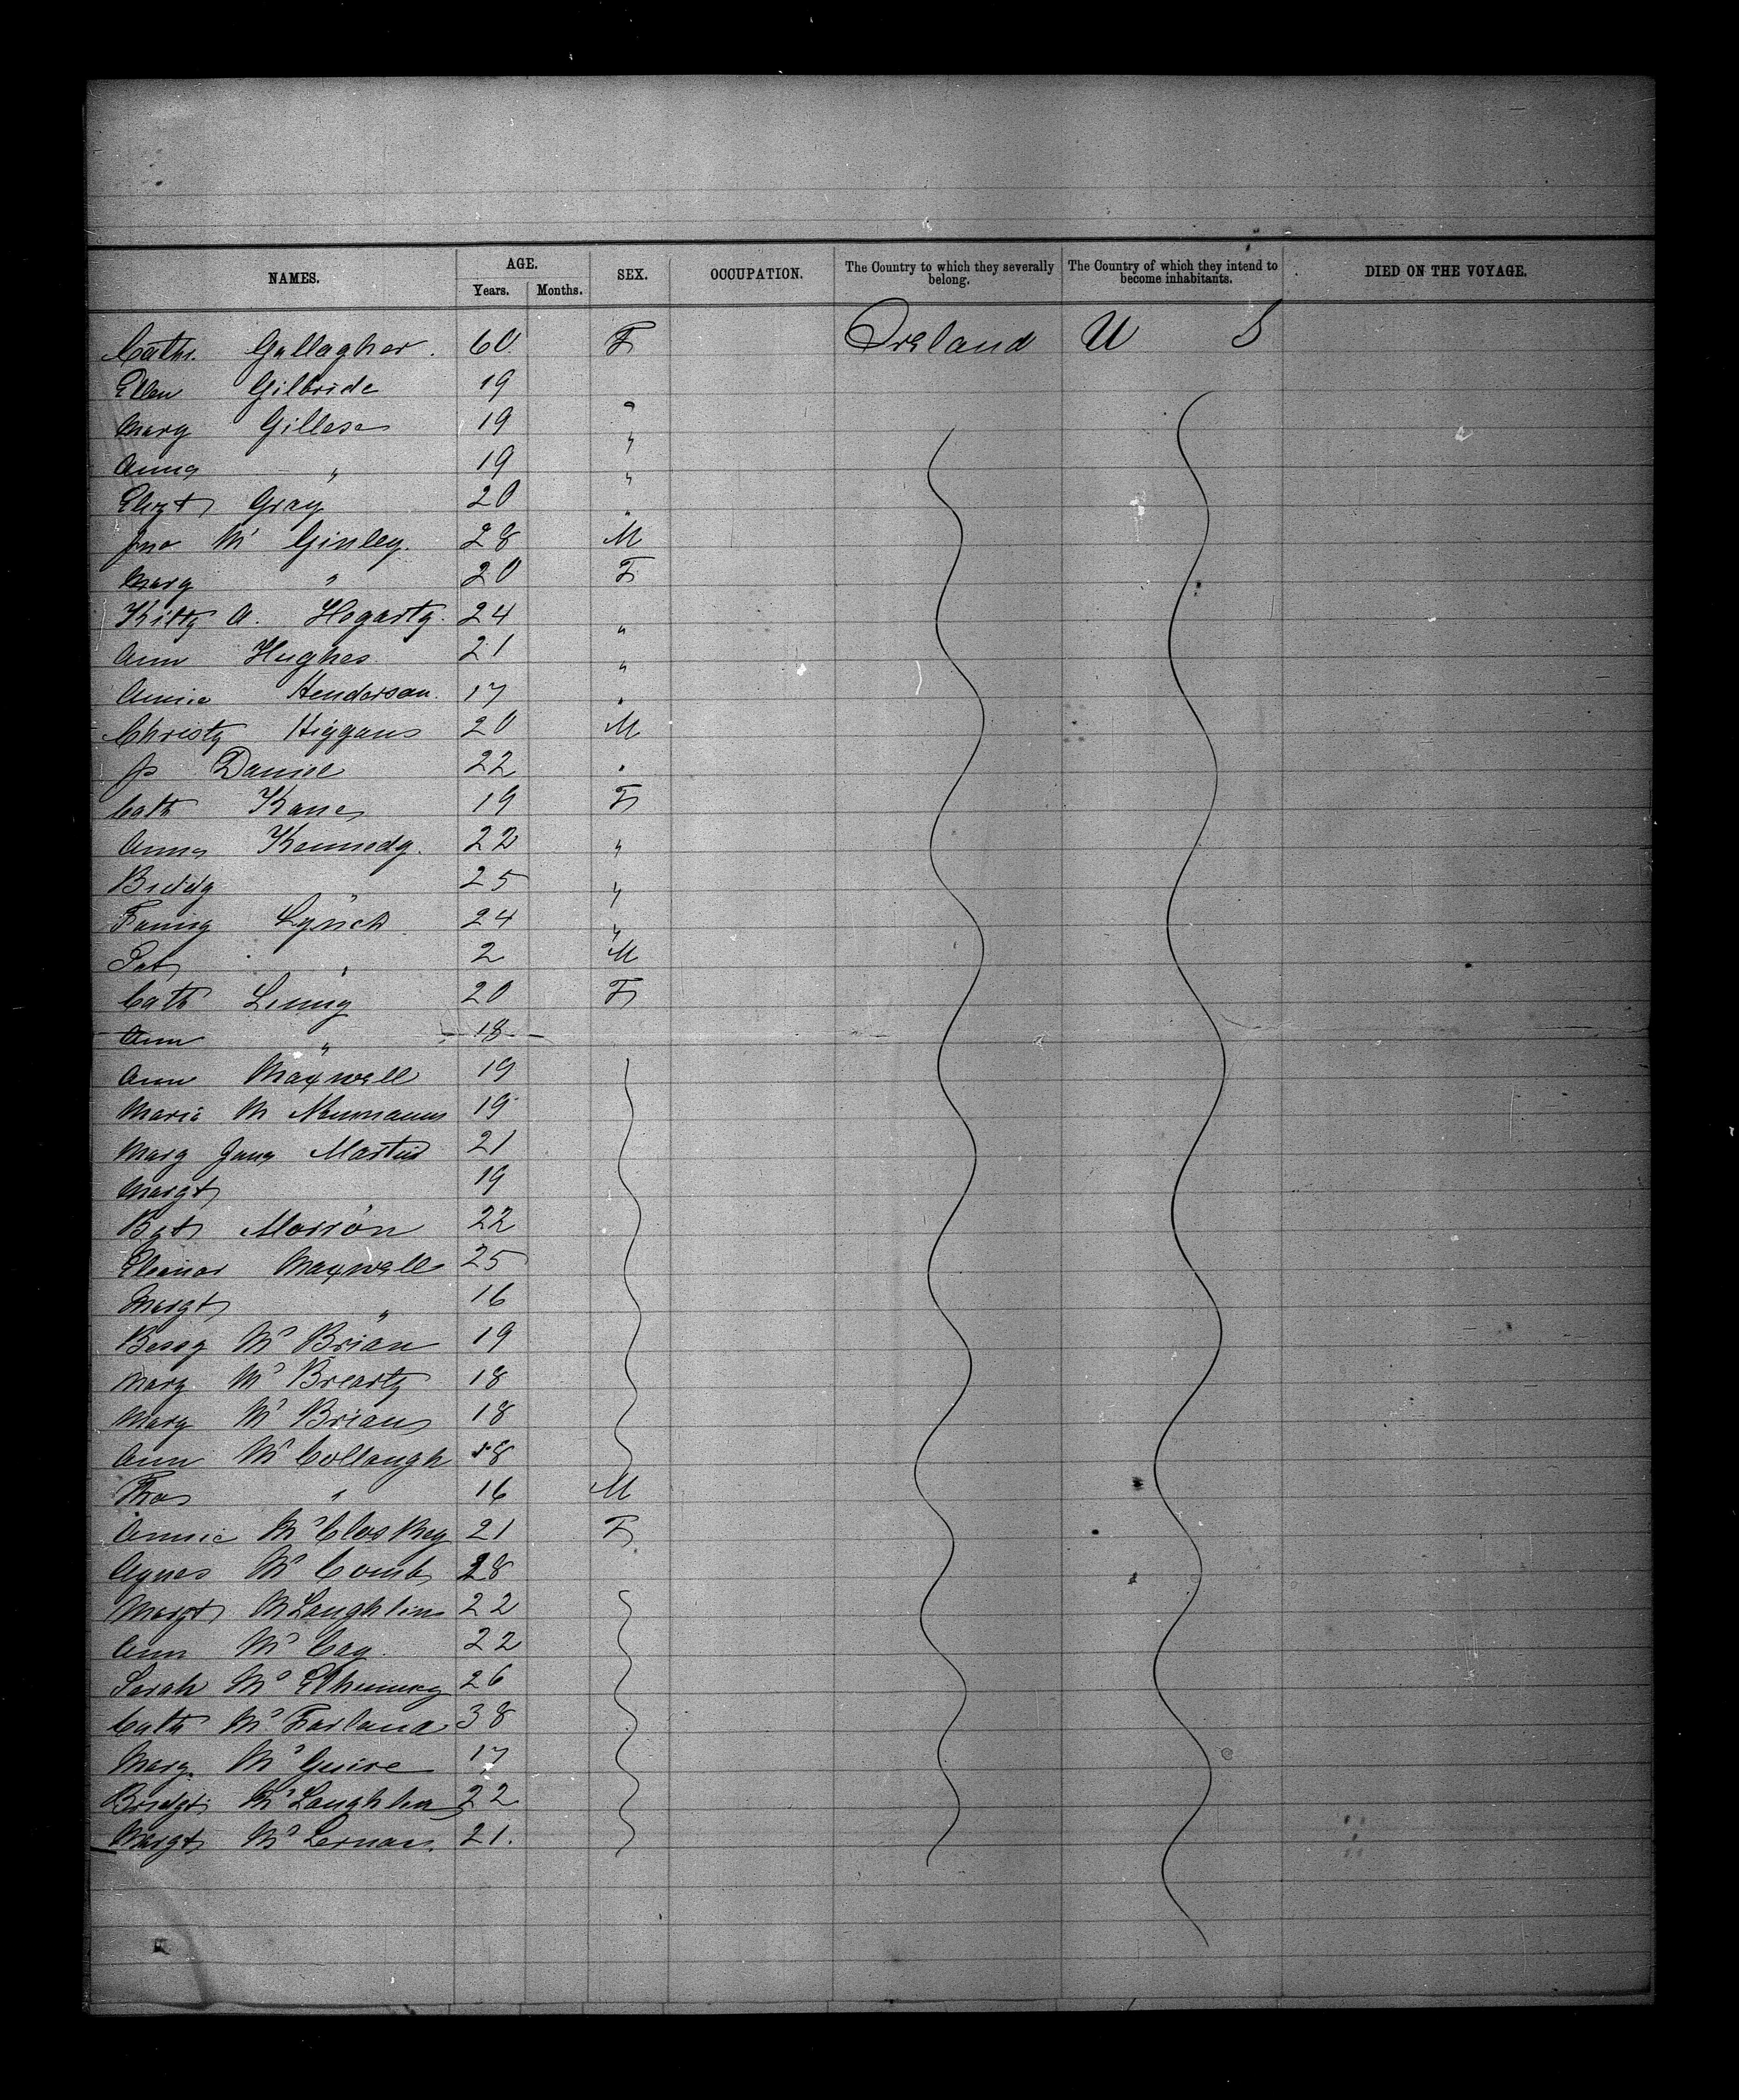 NAMES. AGE. SEX. OCCUPATION. The Country to which they severally belong. The Country of which they intend to become inhabitants. DIED ON THE VOYAGE.
Years. Months.
Cath. Gallagher. 60 F Ireland U S
Ellen Gilbride 19 "
Mary Gillese 19 "
Anny " 19 "
Elizt Gray 20 "
Jno Mc Ginley. 28 M
Mary " 20 F
Kitty A. Hogarty. 24 "
Ann Hughes 21 "
Annie Henderson. 17 "
Christy Higgans 20 M
Js Daniel 22 "
Cath Kane 19 F
Anny Kennedy. 22 "
Biddy " 25 "
Fanny Lynch 24 "
Pat " 2 M
Cath Linny 20 F
Ann " 18
Ann Maxwell 19
Maria Mc 19
Mary Jane Martin 21
Margt 19
Bgt Morron 22
Eleanor Maxwell 25
Margt " 16
Bessy Mc Brian 19
Mary Mc Brearty 18
Mary Mc Brian 18
Ann Mc Collough 18
Thos " 16 M
Annie Mc Closkey 21 F
Agnes Mc Comb 28
Margt McLaughlin 22
Ann Mc Cay 22
Sarah Mc 26
Cath Mc Farland 38
Mary Mc Guire 17
Bridgt Mc Laughlin 22
Margt Mc Lernan. 21.